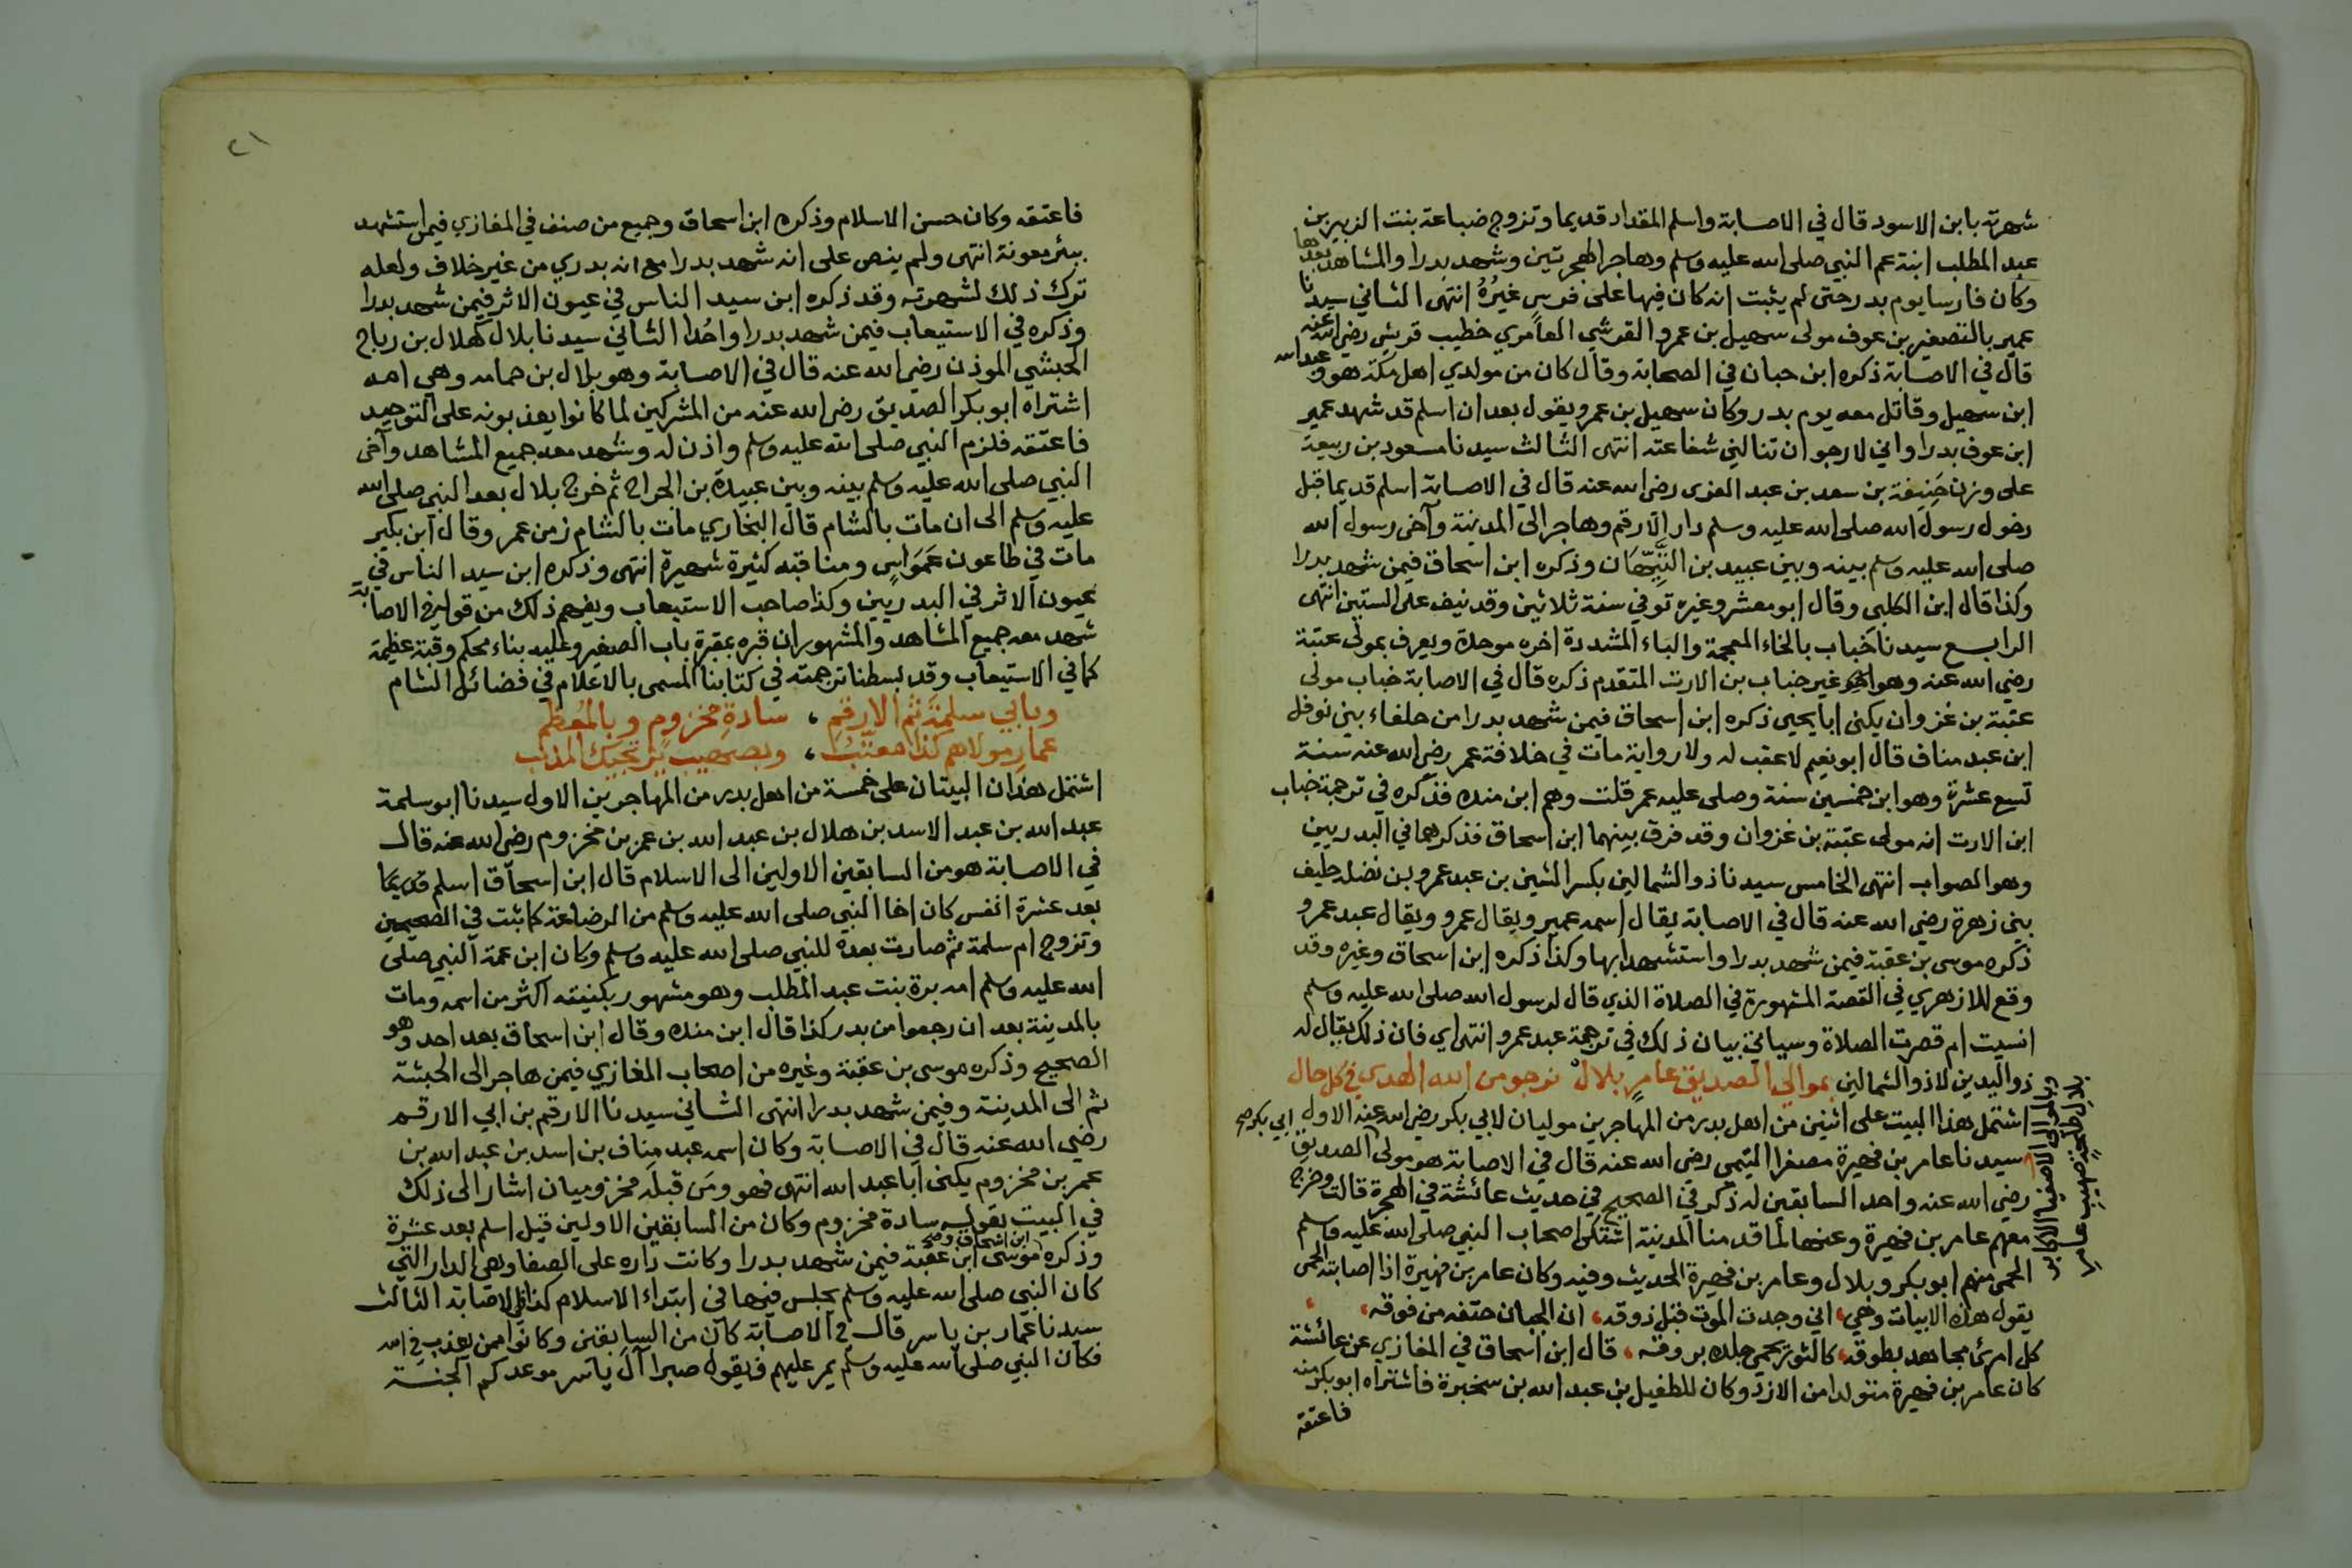 شهرته بابن الاسود قال في الاصابة واسلم المقداد قديما وتزوج ضباعة بنت الزبير بن
عبد المطلب ابنة عم النبي صلى الله عليه وسلم وهاجر الهجرتين وشهد بدرا والمشاهد بعدها
وكان فارسا يوم بدر حتى لم يثبت انه كان فيها على فرس غيرُهُ انتهى الثاني سيدنا
عمير بالتصغير بن عوف مولى سهيل بن عمرو القرشي العامري خطيب قريش رضي الله عنه
قال في الاصابة ذكره ابن حبان في الصحابة وقال كان من مولدي اهل مكة هو وعبد الله
ابن سهيل وقاتل معه يوم بدر وكان سهيل بن عمرو يقول بعد ان اسلم قد شهد عمير
ابن عوف بدرا واني لارجو ان تنالني شفاعته انتهى الثالث سيدنا مسعود بن ربيعة
على وزن حَنِيفة بن سعد بن عبد العزى رضي الله عنه قال في الاصابة اسلم قديما قبل
دخول رسول الله صلى الله عليه وسلم دار الارقم وهاجر الى المدينة وآخى رسول الله
صلى الله عليه وسلم بينه وبين عبيد بن التَّيِّهان وذكره ابن اسحاق فيمن شهد بدرا
وكذا قال ابن الكلبي وقال ابو معشر وغيره توفي سنة ثلاثين وقد نيف على الستين انتهى
الرابع سيدنا خَباب بالخاء المعجمة والباء المشددة اخره موحدة ويعرف بمولى عتبة
رضي الله عنه وهو غير خباب بن الارت المتقدم ذكره قال في الاصابة خباب مولى
عتبة بن غزوان يكنى ابا يحيى ذكره ابن اسحاق فيمن شهد بدرا من حلفاء بني نوفل
ابن عبد مناف قال ابو نعيم لا عقب له ولا رواية مات في خلافة عمر رضي الله عنه سنة
تسع عشرة وهو ابن خمسين سنة وصلى عليه عمر قلت وهم ابن منده فذكره في ترجمة خباب
ابن الارت انه مولى عتبة بن غزوان وقد فرق بينهما ابن اسحاق فذكرهما في البدريين
وهو الصواب انتهى الخامس سيدنا ذو الشمالين بكسر الشين بن عبد عمرو بن نضلة حليف
بني زهرة رضي الله عنه قال في الاصابة يقال اسمه عمير ويقال عمرو ويقال عبد عمرو
ذكره موسى بن عقبة فيمن شهد بدرا واستشهد بها وكذا ذكره ابن اسحاق وغيره وقد
وقع للازهري في القصة المشهورة في الصلاة الذي قال لرسول الله صلى الله عليه وسلم
انسيت ام قصرت الصلاة وسياتي بيان ذلك في ترجمة عبد عمرو انتهى اي فان ذلك يقال له
ذو اليدين لا ذو الشمالين بموالي الصديق عامرٍ بلال نرجو من الله الهدى في كل حال
اشتمل هذا البيت على اثنين من اهل بدر من المهاجرين موليان لابي بكر رضي الله عنه الاول
سيدنا عامر بن فهيرة مصغرا التيمي رضي الله عنه قال في الاصابة هو مولى ابي بكر صح الصديق
رضي الله عنه واحد السابقين له ذكر في الصحيح في حديث عائشة في الهجرة قالت وخرج
معهم عامر بن فهيرة وعنها لما قدمنا المدينة اشتكى اصحاب النبي صلى الله عليه وسلم
الحمى منهم ابو بكر وبلال وعامر بن فهيرة الحديث وفيه وكان عامر بن فهيرة اذا اصابته الحمى
يقول هذه الابيات وهي، اني وجدت الموت قبل ذوقه، ان الجبان حتفه من فوقه،
كل امرئ مجاهد بطوقه، كالثور يحمي جلده بروقه، قال ابن اسحاق في المغازي عن عائشة
كان عامر بن فهيرة متولدا من الازد وكان للطفيل بن عبد الله بن سخبرة فاشتراه ابو بكر منه
فاعتقه
٢١
فاعتقه وكان حسن الاسلام وذكره ابن اسحاق وجميع من صنف في المغازي فيمن استشهد
ببئر معونة انتهى ولم ينص على انه شهد بدرا مع انه بدري من غير خلاف ولعله
ترك ذلك لشهرته وقد ذكره ابن سيد الناس في عيون الاثر فيمن شهد بدرا
وذكره في الاستيعاب فيمن شهد بدرا واحُدا الثاني سيدنا بلال كهلال بن رباح
الحبشي الموذن رضي الله عنه قال في الاصابة وهو بلال بن حمامه وهي امه
اشتراه ابو بكر الصديق رضي الله عنه من المشركين لما كانوا يعذبونه على التوحيد
فاعتقه فلزم النبي صلى الله عليه وسلم واذن له وشهد معه جميع المشاهد وآخى
النبي صلى الله عليه وسلم بينه وبين عبيدة بن الجراح ثم خرج بلال بعد النبي صلى الله
عليه وسلم الى ان مات بالشام قال البخاري مات بالشام زمن عمر وقال ابن بكير
مات في طاعون عَمَوَاس ومناقبه كثيرة شهيرة انتهى وذكره ابن سيد الناس في
عيون الاثر في البدريين وكذا صاحب الاستيعاب ويفهم ذلك من قوله في الاصابة
شهد معه جميع المشاهد والمشهور ان قبره بمقبرة باب الصغير وعليه بناء محكم وقبة عظيمة
كما في الاستيعاب وقد بسطنا ترجمته في كتابنا المسمى بالاعلام في فضائل الشام
وبابي سلمة ثم الارقم ، سادة مخزوم وبالمُعظم
عمار مولاهم كذا معتّب ، وبصهيب
اشتمل هذان البيتان على خمسة من اهل بدر من المهاجرين الاول سيدنا ابو سلمة
عبد الله بن عبد الاسد بن هلال بن عبد الله بن عمر بن مخزوم رضي الله عنه قال
في الاصابة هو من السابقين الاولين الى الاسلام قال ابن اسحاق اسلم قديما
بعد عشرة انفس كان اخا النبي صلى الله عليه وسلم من الرضاعة كما ثبت في الصحيحين
وتزوج ام سلمة ثم صارت بعده للنبي صلى الله عليه وسلم وكان ابن عمة النبي صلى
الله عليه وسلم امه برة بنت عبد المطلب وهو مشهور بكنيته اكثر من اسمه ومات
بالمدينة بعد ان رجعوا من بدر كذا قال ابن منده وقال ابن اسحاق بعد احد وهو
الصحيح وذكره موسى بن عقبة وغيره من اصحاب المغازي فيمن هاجر الى الحبشة
ثم الى المدينة وفيمن شهد بدرا انتهى الثاني سيدنا الارقم بن ابي الارقم
رضي الله عنه قال في الاصابة وكان اسمه عبد مناف بن اسد بن عبد الله بن
عمر بن مخزوم يكنى ابا عبد الله انتهى فهو ومَن قبلَه مخزوميان اشار الى ذلك
في البيت بقوله سادة مخزوم وكان من السابقين الاولين قيل اسلم بعد عشرة
وذكره ابن اسحاق وصح موسى ابن عقبة فيمن شهد بدرا وكانت داره على الصفا وهي الدار التي
كان النبي صلى الله عليه وسلم يجلس فيها في ابتداء الاسلام كذا في الاصابة الثالث
سيدنا عمار بن ياسر قال في الاصابة كان من السابقين وكانوا ممن يعذب في الله
فكان النبي صلى الله عليه وسلم يمر عليهم فيقول صبرا آل ياسر موعدكم الجنة